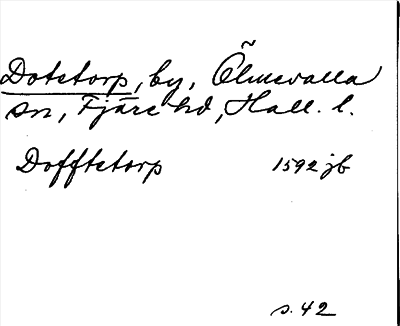 Dotetorp, by, Ölmevalla
sn, Fjäre hd, Hall. l.
Dofftetorp 1592 jb
s. 42